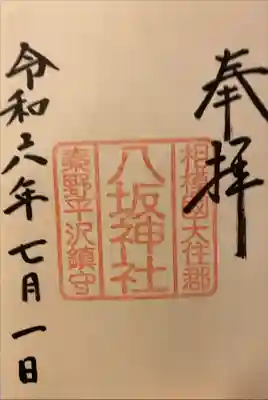 奉拝
相模國大住郡
八坂神社
秦野平沢鎮守
令和六年七月一日